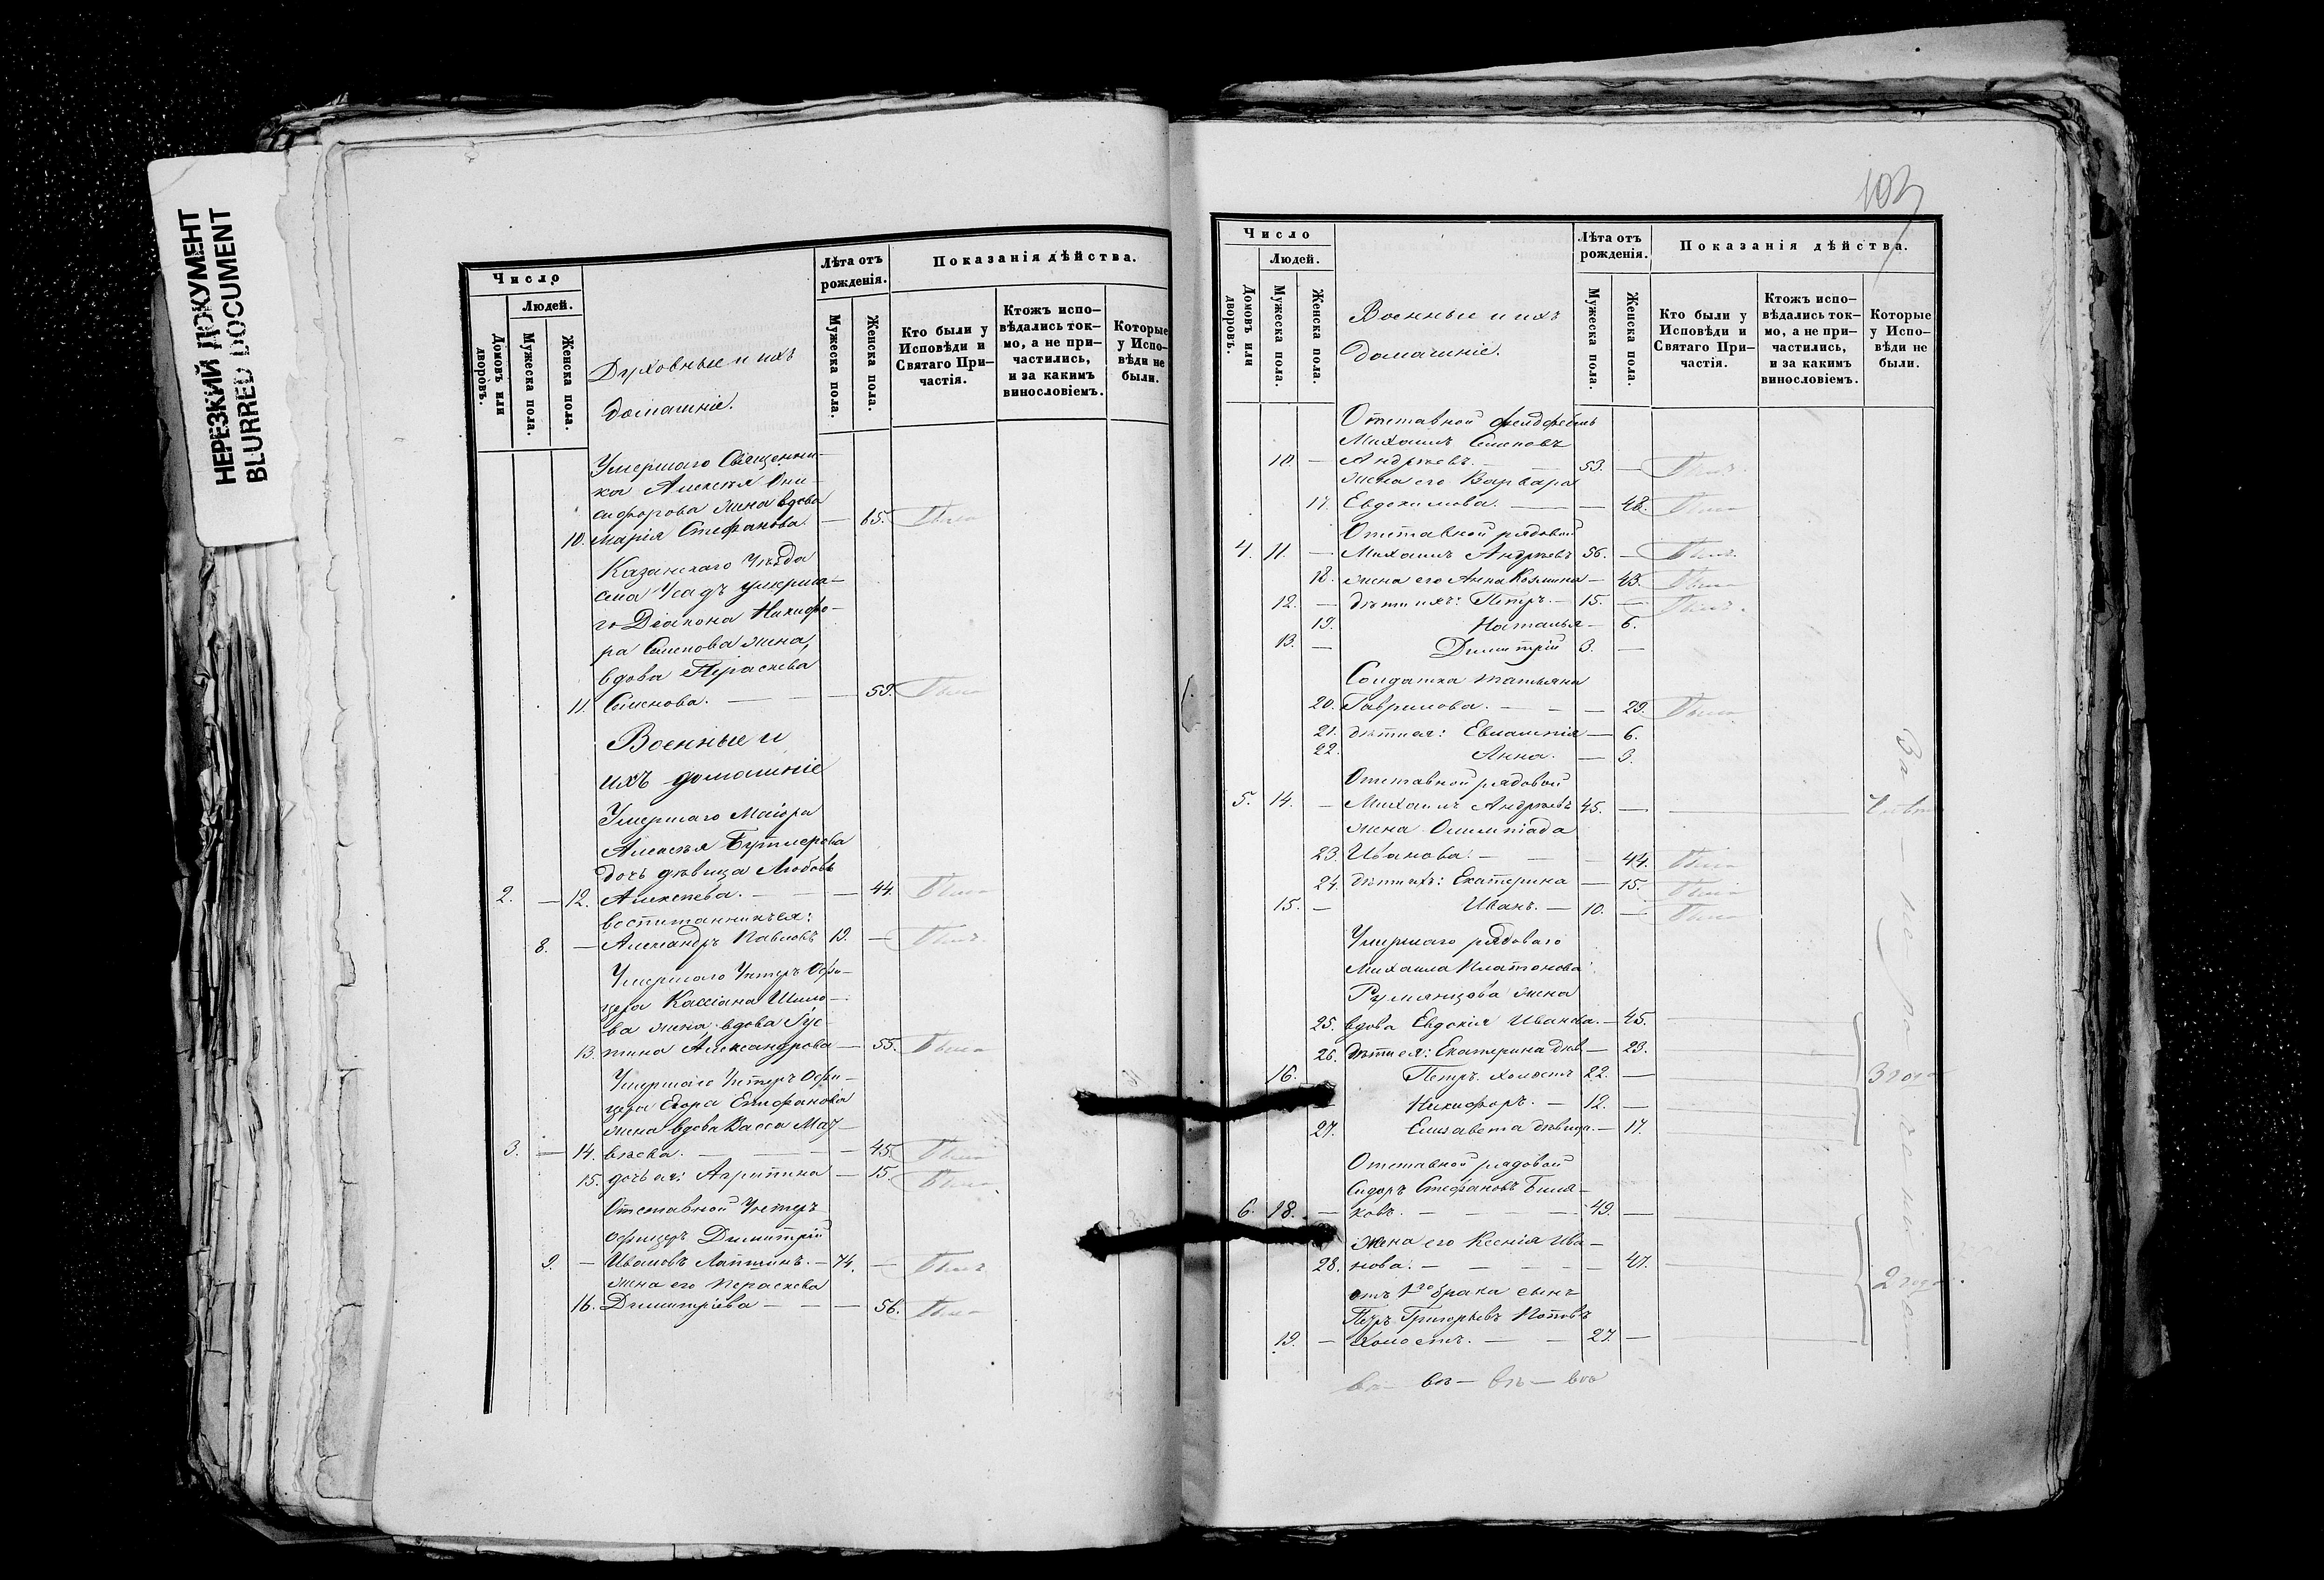 НЕРЕЗКИЙ ДОКУМЕНТ
BLURRED DOCUMENT
Число
Людей.
Домовъ или дворовъ.
Мужеска пола.
Женска пола.
Духовные и ихъ
домашніе.
Лѣта отъ рожденія.
Мужеска пола.
Женска пола.
Показанія дѣйства.
Кто были у Исповѣди и Святаго При-частія.
Ктожъ испо-вѣдались ток-мо, а не при-частились, и за какимъ винословіемъ.
Которые у Испо-вѣди не были.
Умершаго Священни-
ка Алексѣя Они-
сифорова жена вдова
10. Марія Стефанова. — 65. Была
Казанскаго Уѣзда
села Усадъ умерша-
го Діакона Никифо-
ра Семенова жена,
вдова Пераскева
11. Семенова. — — 59. Была
Военные и
ихъ домашніе
Умершаго Маіора
Алексѣя Бутлерова
дочь дѣвица Любовь
2. — 12. Алексѣева. — — 44. Была
воспитанникъ ея:
8. — Александръ Павловъ 19. — Былъ.
Умершаго Унтеръ Офи-
цера Кассіана Шило-
ва жена, вдова Іус-
13. тина Александрова — 55. Была
Умершаго Унтеръ Офи-
цера Егора Епифанова
жена вдова Васса Мат-
3. — 14. вѣева. — — — 45. Была
15. дочь ея: Агрипина — 15. Была
Отставной Унтеръ
офицеръ Димитрій
9. — Ивановъ Лапшинъ. — 74. — Былъ
жена его Пераскева
16. Димитріева — — — 56. Была
103
Число
Людей.
Домовъ или дворовъ.
Мужеска пола.
Женска пола.
Военные и ихъ
домашніе.
Лѣта отъ рожденія.
Мужеска пола.
Женска пола.
Показанія дѣйства.
Кто были у Исповѣди и Святаго При-частія.
Ктожъ испо-вѣдались ток-мо, а не при-частились, и за какимъ винословіемъ.
Которые у Испо-вѣди не были.
Отставной фелдфебель
Михаилъ Семеновъ
10. — Андреевъ. — 53. — Былъ.
жена его Варвара
17. Евдокимова. — — 48. Была
Отставной рядовой
4. 11. — Михаилъ Андреевъ 56. — Былъ.
18. жена его Анна Козмина — 43. Была
12. — дѣти ихъ: Петръ. — 15. — Былъ.
19. Наталья — 6.
13. — Димитрій 3. —
Солдатка Татьяна
20. Гаврилова. — — — 29. Была
21. дѣти ея: Евлампія — 6.
22. Анна. — 3.
Отставной рядовой
5. 14. — Михаилъ Андреевъ 45. —
жена Олимпіада
23. Иванова. — — — 44. Была
24. дѣти ихъ: Екатерина — 15. Была
15. — Иванъ. — 10. — Былъ
Умершаго рядоваго
Михаила Платонова
Румянцова жена
25. вдова Евдокія Иванова. — 45.
26. дѣти ея: Екатерина дѣв. — 23.
16. Петръ. холостъ 22. — 3 года
— Никифоръ. — 12. —
27. Елизавета дѣвица. — 17.
Отставной рядовой
Сидоръ Стефановъ Биля-
6. 18. — ковъ. — — — 49. —
жена его Ксенія Ива-
28. нова. — — — — 47.
2 года
отъ 1го брака сынъ
Петръ Григорьевъ Поповъ
19. — холостъ. — — 27. —